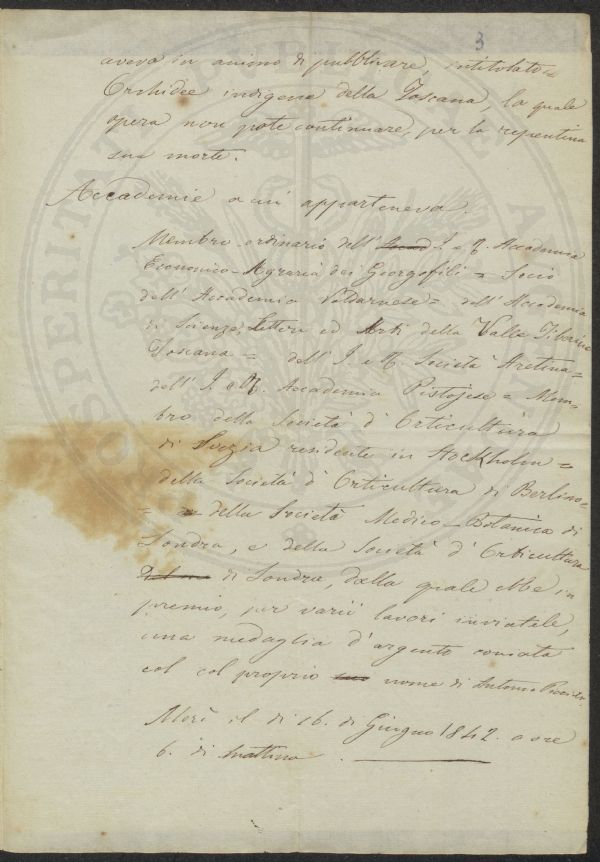 3
aveva in animo di pubblicare, intitolato=
Orchidee indigene della Toscana, la quale
opera non potè continuare, per la repentina
sua morte.
Accademie a cui apparteneva.
Membro ordinario dell' I. e R. Accademia
Economico-Agraria dei Georgofili = Socio
dell' Accademia Valdarnese = dell' Accademia
di Scienze, Lettere ed Arti della Valle Tiberina
Toscana = dell' I. e R. Società Aretina =
dell' I. e R. Accademia Pistojese = Mem-
bro della Società d' Orticultura
di Svezia residente in Stockholm =
della Società d' Orticultura di Berlino =
= della Società Medico-Botanica di
Londra, e della Società d' Orticultura
di Londra, dalla quale ebbe in
premio, per varii lavori inviatele,
una medaglia d'argento coniata
col col proprio nome di Antonio
Morì il dì 16. di Giugno 1842. a ore
6. di mattina.